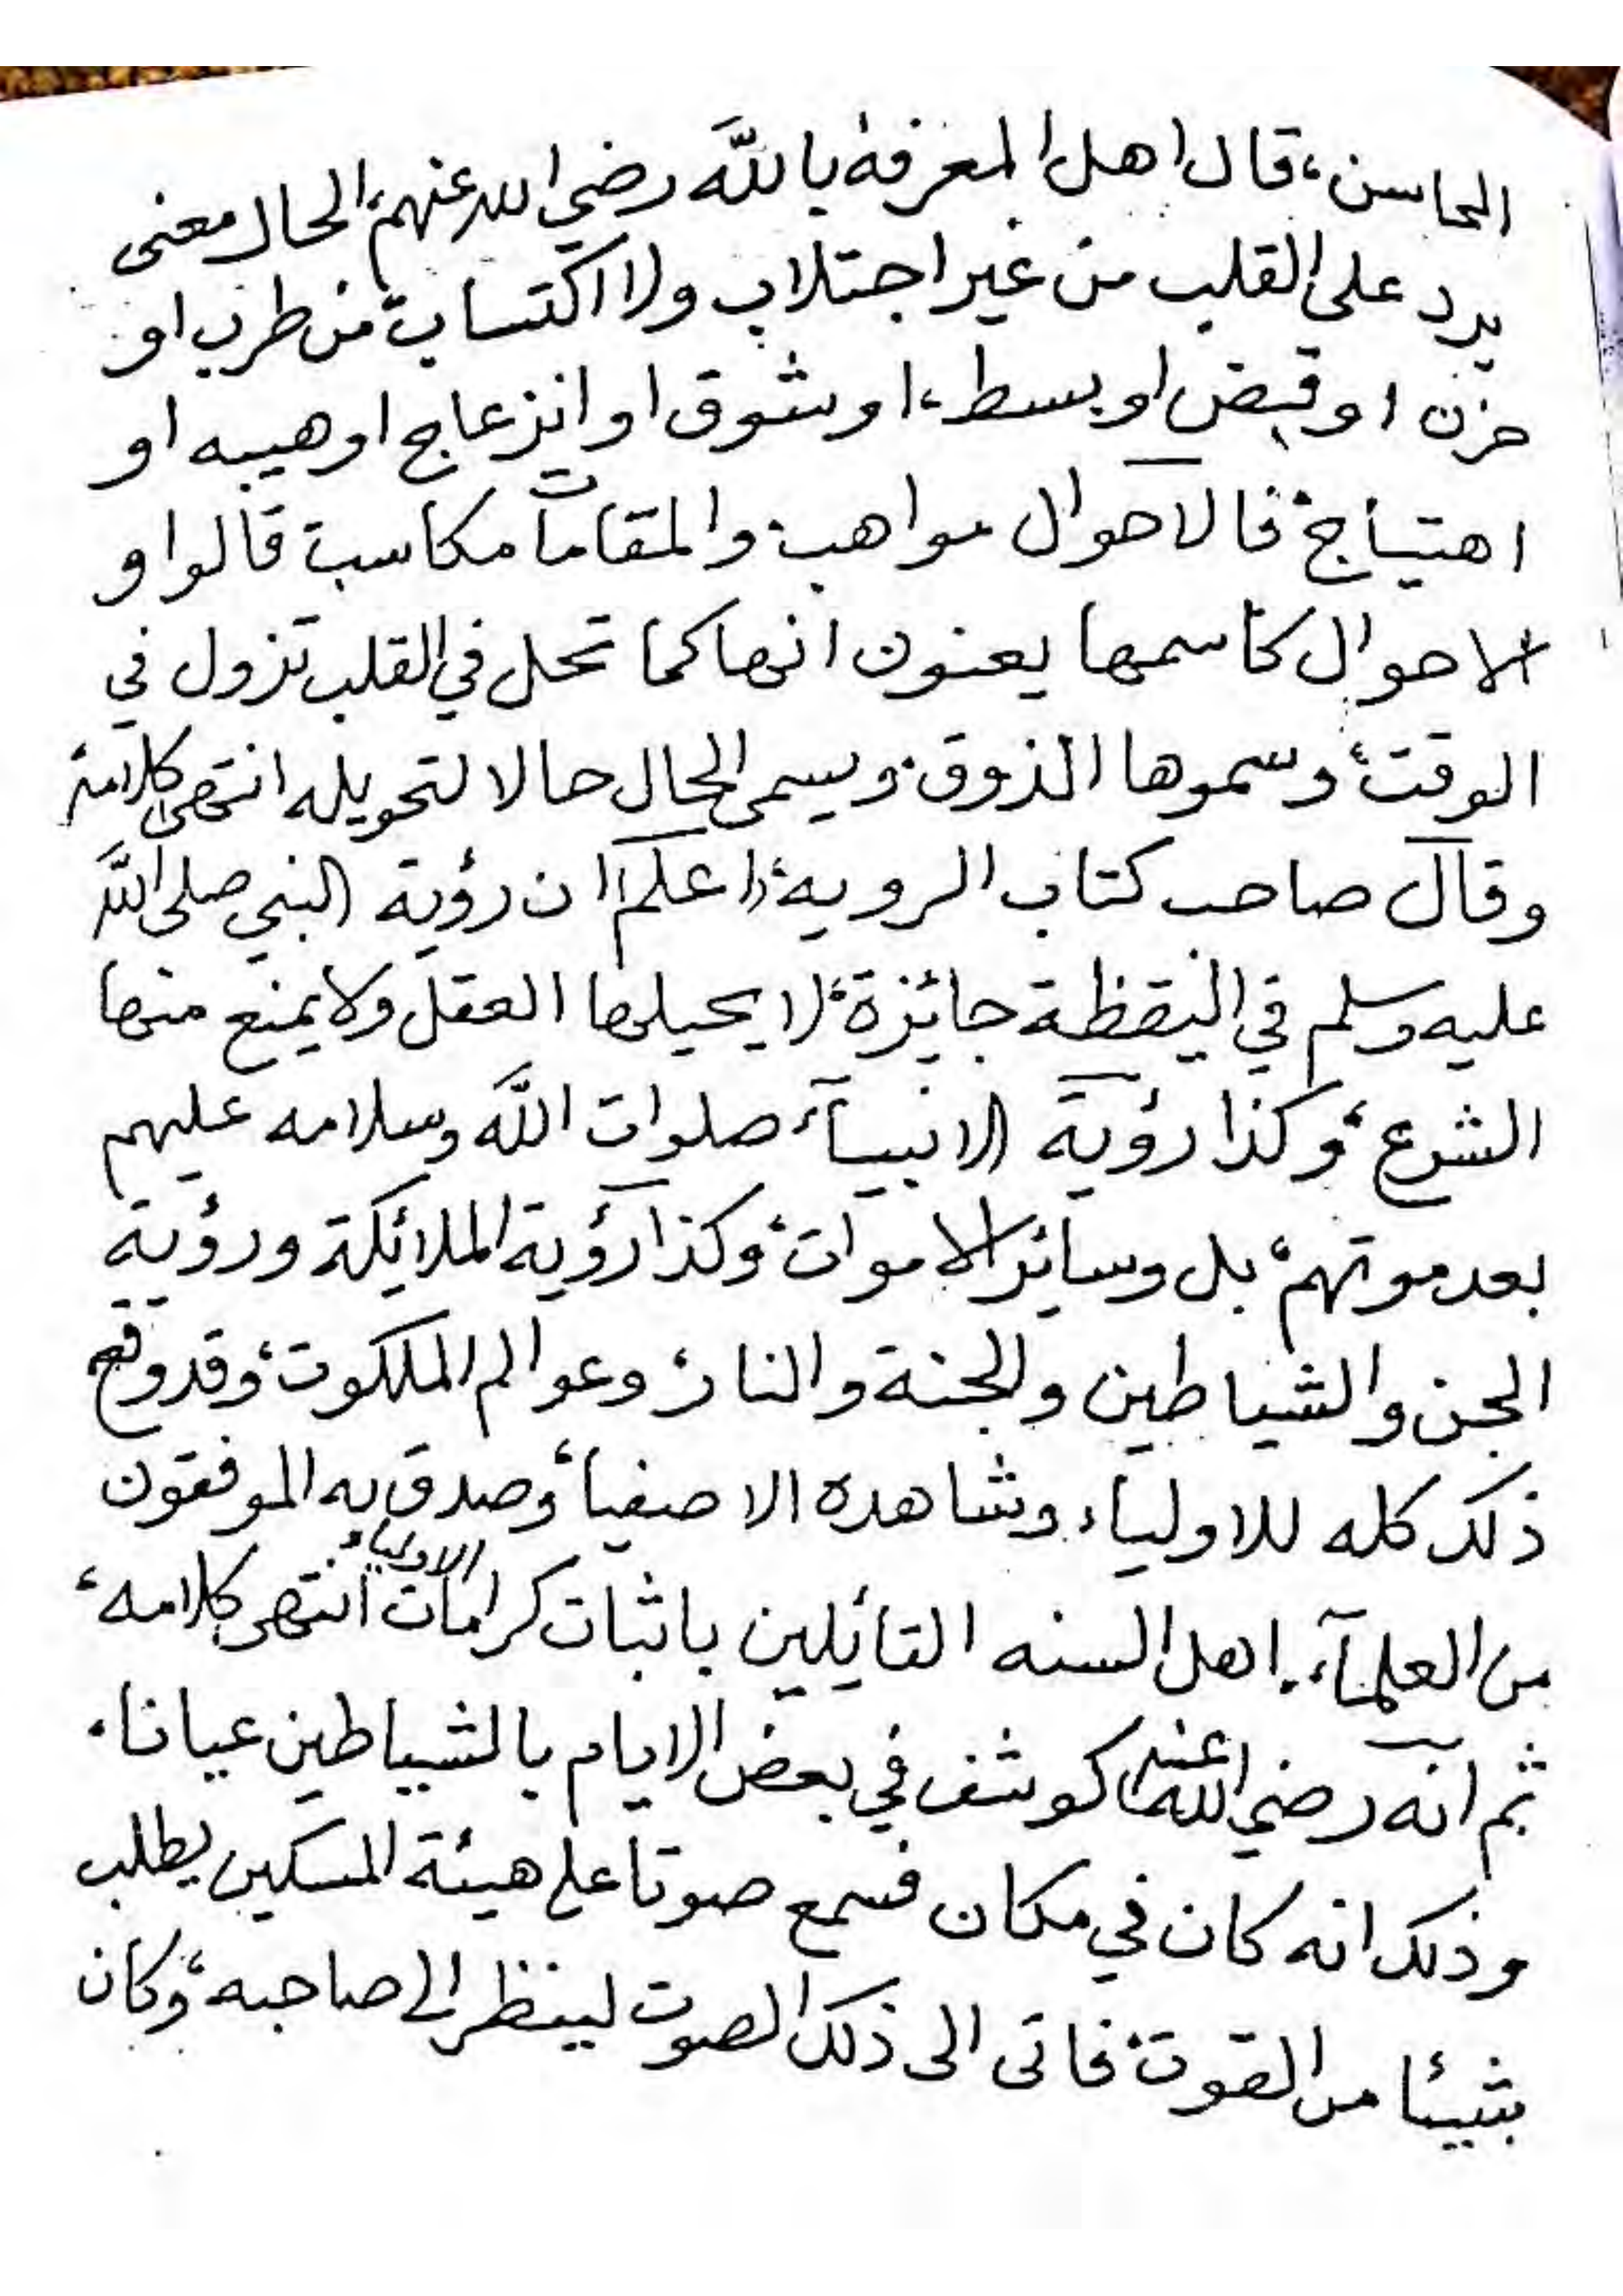 المحاسن، قال اهل المعرفة بالله رضي الله عنهم، الحال معنى
يرد على القلب من غير اجتلاب ولا اكتساب من طرب او
حزن او قبض او بسط، او شوق او انزعاج او هيبه او
اهتياج، فالاحوال مواهب والمقامات مكاسب قالوا و
الاحوال كاسمها يعنون انها كما تحل في القلب تزول في
الوقت، وسموها الذوق، ويسمى الحال حالا لتحويله انتهى كلامه
وقال صاحب كتاب الرويه، اعلم ان رؤية النبي صلى الله
عليه وسلم في اليقظة جائزة، لا يحيلها العقل ولا يمنع منها
الشرع، وكذا رؤية الانبيآء صلوات الله وسلامه عليهم
بعد موتهم، بل وسائر الاموات، وكذا رؤية الملائكة ورؤية
الجن والشياطين والجنة والنار، وعوالم الملكوت، وقد وقع
ذلك كله للاولياء، وشاهده الاصفياء وصدق به الموفقون
من العلمآء، اهل السنه القائلين باثبات كرامات الاولياء انتهى كلامه،
ثم انه رضي الله عنه كوشف في بعض الايام بالشياطين عيانا،
وذلك انه كان في مكان فسمع صوتا على هيئة المسكين يطلب
شيئا من القوت، فاتى الى ذلك الصوت لينظر الى صاحبه، وكان